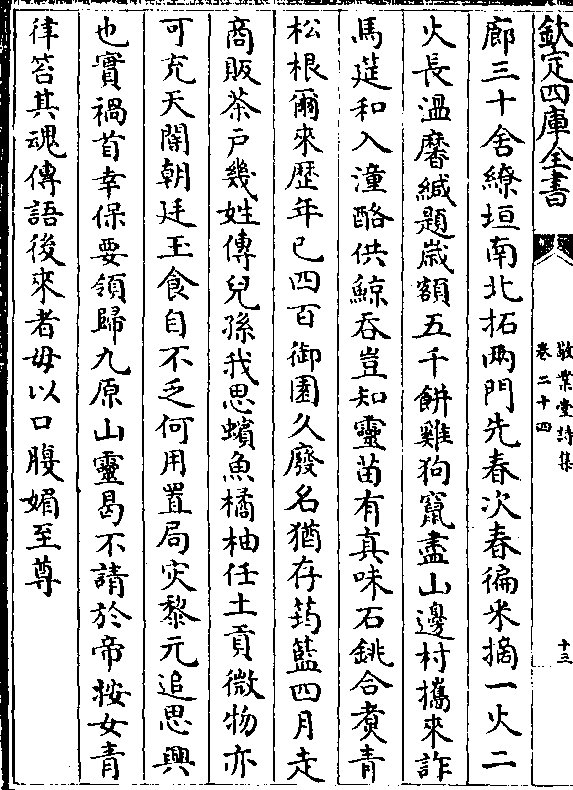 欽定四庫全書
敬業堂詩集
卷二十四
十三
廊三十舍繚垣南北拓兩門先春次春徧采摘一火二
火長溫黁緘題歲額五千餅雞狗竄盡山邊村攜來詐
馬筵和入潼酪供鯨吞豈知靈苗有真味石銚合煑青
松根爾來歴年已四百御園久廢名猶存筠籃四月走
商販茶戸幾姓傳兒孫我思蠙魚橘柚任土貢微物亦
可充天閽朝廷玉食自不乏何用置局灾黎元追思興
也實禍首幸保要領歸九原山靈曷不請於帝按女青
律笞其魂傳語後來者毋以口腹媚至尊